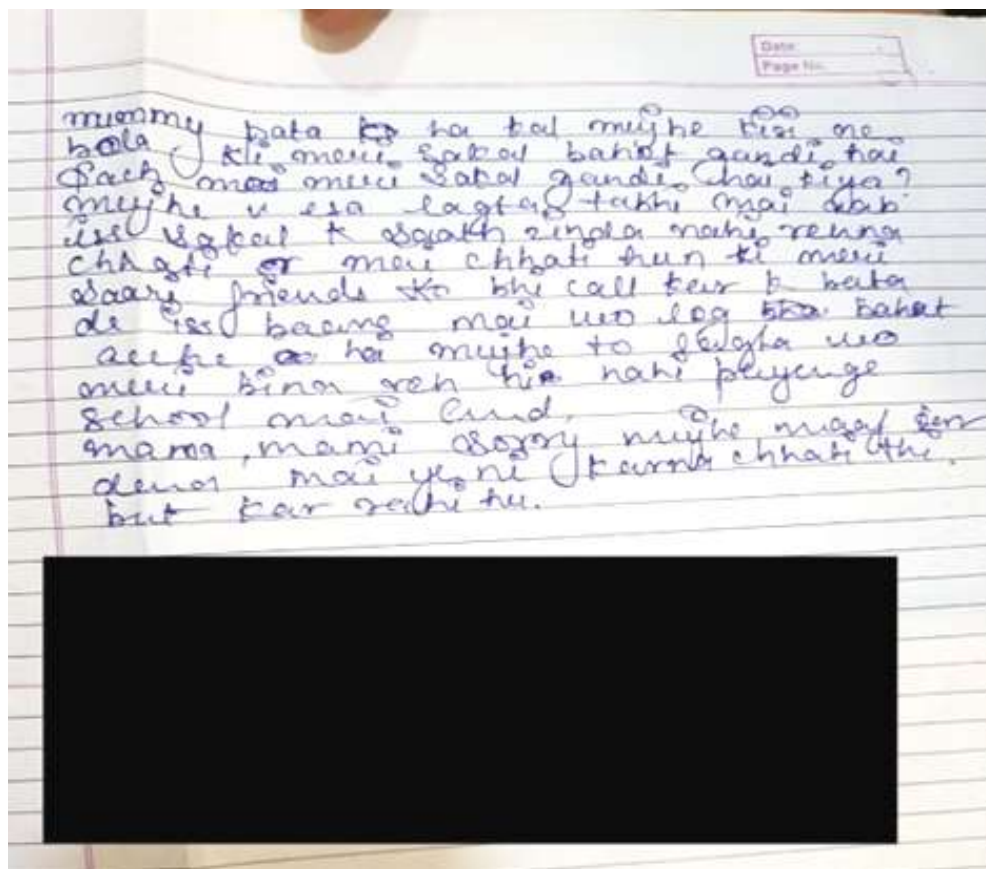 Date
Page No.
mummy pata ha kal mujhe kisi ne
bola ki meri sakal bahot gandi hai
Sach mai meri sakal gandi hai kiya?
mujhe u esa lagta takhi mai ab
iss sakal k saath zinda nahi rehna
chhati or mai chhati hun ki meri
saary friends ko bhi call ker k bata
de iss baary mai wo log bahot
acche ha mujhe to lagta wo
meri bina reh hi nahi payenge
school mai
mama, mami sorry mujhe maaf ker
dena mai ye ni karna chhati thi.
but kar rahi hu.